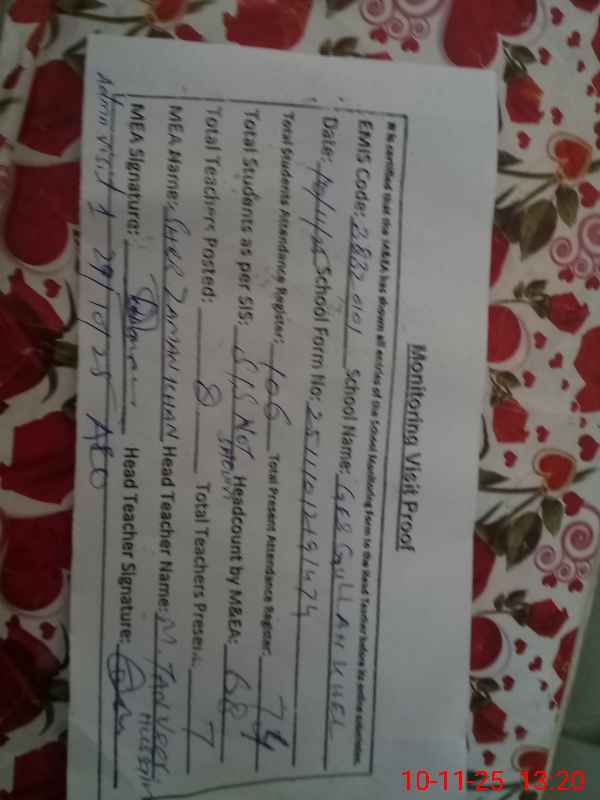 Monitoring Visit Proof
It is certified that the M&EA has shown all entries of the School Monitoring Form to the Head Teacher before its online submission.
EMIS Code: 38320101 School Name: GES GULL ALI KHEL
Date: 10/11/25 School Form No: 25111012191474
Total Students Attendance Register: 106 Total Present Attendance Register: 74
Total Students as per SIS: SIS NOT SHOWN Headcount by M&EA: 68
Total Teachers Posted: 8 Total Teachers Present: 7
MEA Name: SHER ZAMAN KHAN Head Teacher Name: M. TANVEER HUSSAIN
MEA Signature: Head Teacher Signature:
Admin visit 1 29/10/25 AEO
10-11-25 13:20